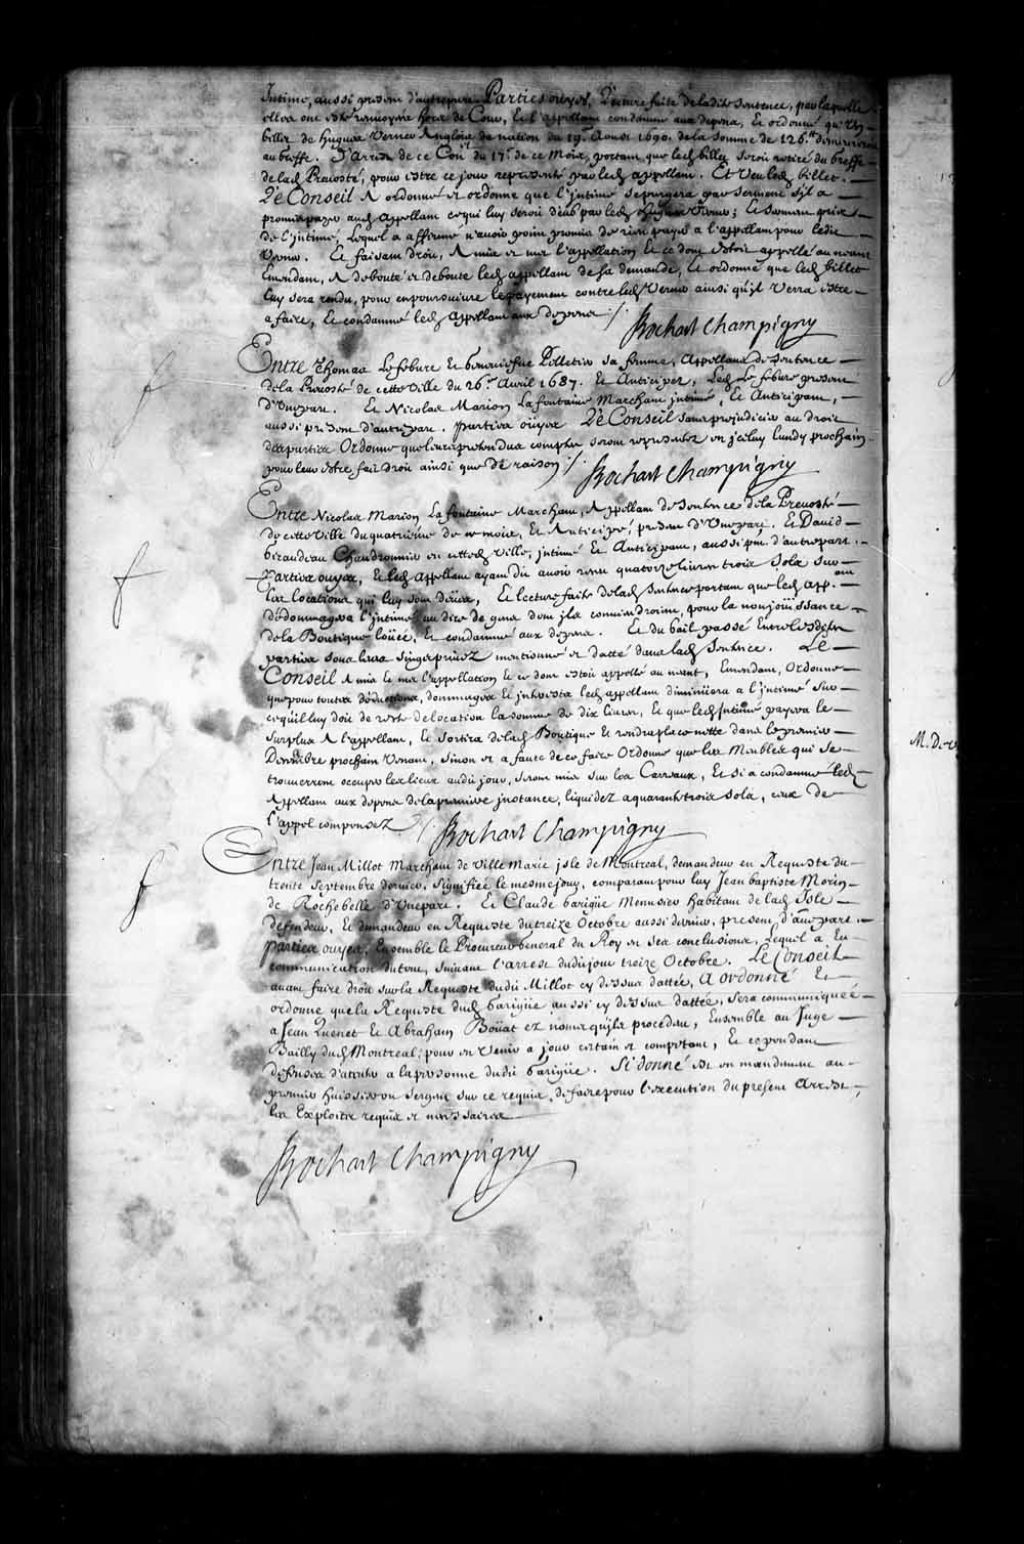 Intimé, aussi present d'autrepart. Parties ouyes, Lecture faite de ladite Sentence, par laquelle
elles ont esté renvoyées hors de Cour, Et l'appellant condamné aux depens, Et ordonné qu'un
billet de Hugues Vernes Anglois de nation du 19e. Aoust 1690. de la somme de 126.lt
au Greffe. L'arrest de ce Con.el du 17e. de ce Mois, portant que led billet seroit retiré du Greffe
de lad Prevosté, pour estre ce jour representé par led appellant. Et Veu led billet.
Le Conseil A ordonné et ordonne que l'intimé se purgera par serment s'il a
promis payer aud appellant ce qui luy seroit deub par led Hugues Vernes; Le serment pris
de l'intimé, Lequel a affirmé n'avoir point promis de rien payer a l'appellant pour ledit
Vernes. Et faisant droit, A mis et met l'appellation Et ce dont estoit appellé au neant
Emendant, A debouté et deboute led appellant de sa demande, Et ordonné que led billet
luy sera rendu, pour en poursuivre le payement contre led Vernes ainsi qu'il Verra estre
a faire, Et condamné led appellant aux depens ./.
Bochart Champigny
Entre Thomas Lefebure Et Genevieve Pelletier sa femme, Appellans de Sentence
de la Prevosté de cette Ville du 26e. Avril 1687. Et Anticipez, Led Lefebure present
d'Unepart. Et Nicolas Marion Lafontaine Marchant intimé, Et Anticipant,
aussi present d'autrepart. parties oüyes Le Conseil sans prejudicier au droit
des parties Ordonne que leurs pretendus comptes seront representez en iceluy Lundy prochain
pour leur estre fait droit ainsi que de raison ./.
Bochart Champigny
Entre Nicolas Marion Lafontaine Marchant, Appellant de Sentence de la Prevosté
de cette Ville du quatriéme de ce mois, Et Anticipé, present d'Unepart. Et David
Giraudeau Chaudronnier en cetted Ville, intimé Et Anticipant, aussi pnt. d'autrepart.
Parties ouyes, Et led appellant ayant dit avoir receu quatorze livres trois sols sur
les locations qui luy sont deües, Et lecture faite de lad Sentence portant que led app.ant
dedommagera l'intimé au dire de gens dont ils conviendroient, pour la non joüissance
de la Boutique loüée, Et condamné aux depens. Et du bail passé Entre lesdites
parties sous leurs seings privez mentionné et datté dans lad Sentence. Le
Conseil A mis Et met l'appellation Et ce dont estoit appellé au neant, Emendant, Ordonne
que pour toutes deductions, dommages Et interests led appellant diminüera a l'intimé sur
ce qu'il luy doit de reste de location la somme de dix livres, Et que led intimé payera le
surplus A l'appellant, Et sortira de lad Boutique Et rendra place nette dans le premier
Decembre prochain Venant, sinon et a faute de ce faire Ordonne que les Meubles qui se
trouverront occuper les lieux audit jour, seront mis sur les Carreaux, Et si a condamné led
Appellant aux depens de la premiere instance, liquidez a quarante trois sols, ceux de
l'appel compensez ./.
Bochart Champigny
Entre Jean Millot Marchant de Ville Marie isle de Montreal, demandeur en Requeste du
trente Septembre dernier, signifiée le mesme jour, comparant pour luy Jean baptiste Morin
de Rochebelle d'Unepart. Et Claude Garigüe Menusier habitant de lad Isle
defendeur, Et demandeur en Requeste du treize Octobre aussi dernier, present d'autrepart.
parties ouyes, Ensemble le Procureur General du Roy en ses conclusions, Lequel a Eu
communication du tout, suivant l'arrest dudit jour treize Octobre. Le Conseil
avant faire droit sur la Requeste dudit Millot cy dessus dattée, A ordonné Et
ordonne que la Requeste dud Garigüe aussi cy dessus dattée, sera communiqueé
a Jean Quenet Et Abraham Boüat ez noms qu'ils procedent, Ensemble au Juge
Bailly dud Montreal, pour en Venir a jour certain et competant, Et cependant
defenses d'attenter a la personne dudit Garigüe. Si donné est en mandement au
premier huissier ou sergent sur ce requis, de faire pour l'execution du present Arrest
les Exploits requis et necessaires
Bochart Champigny